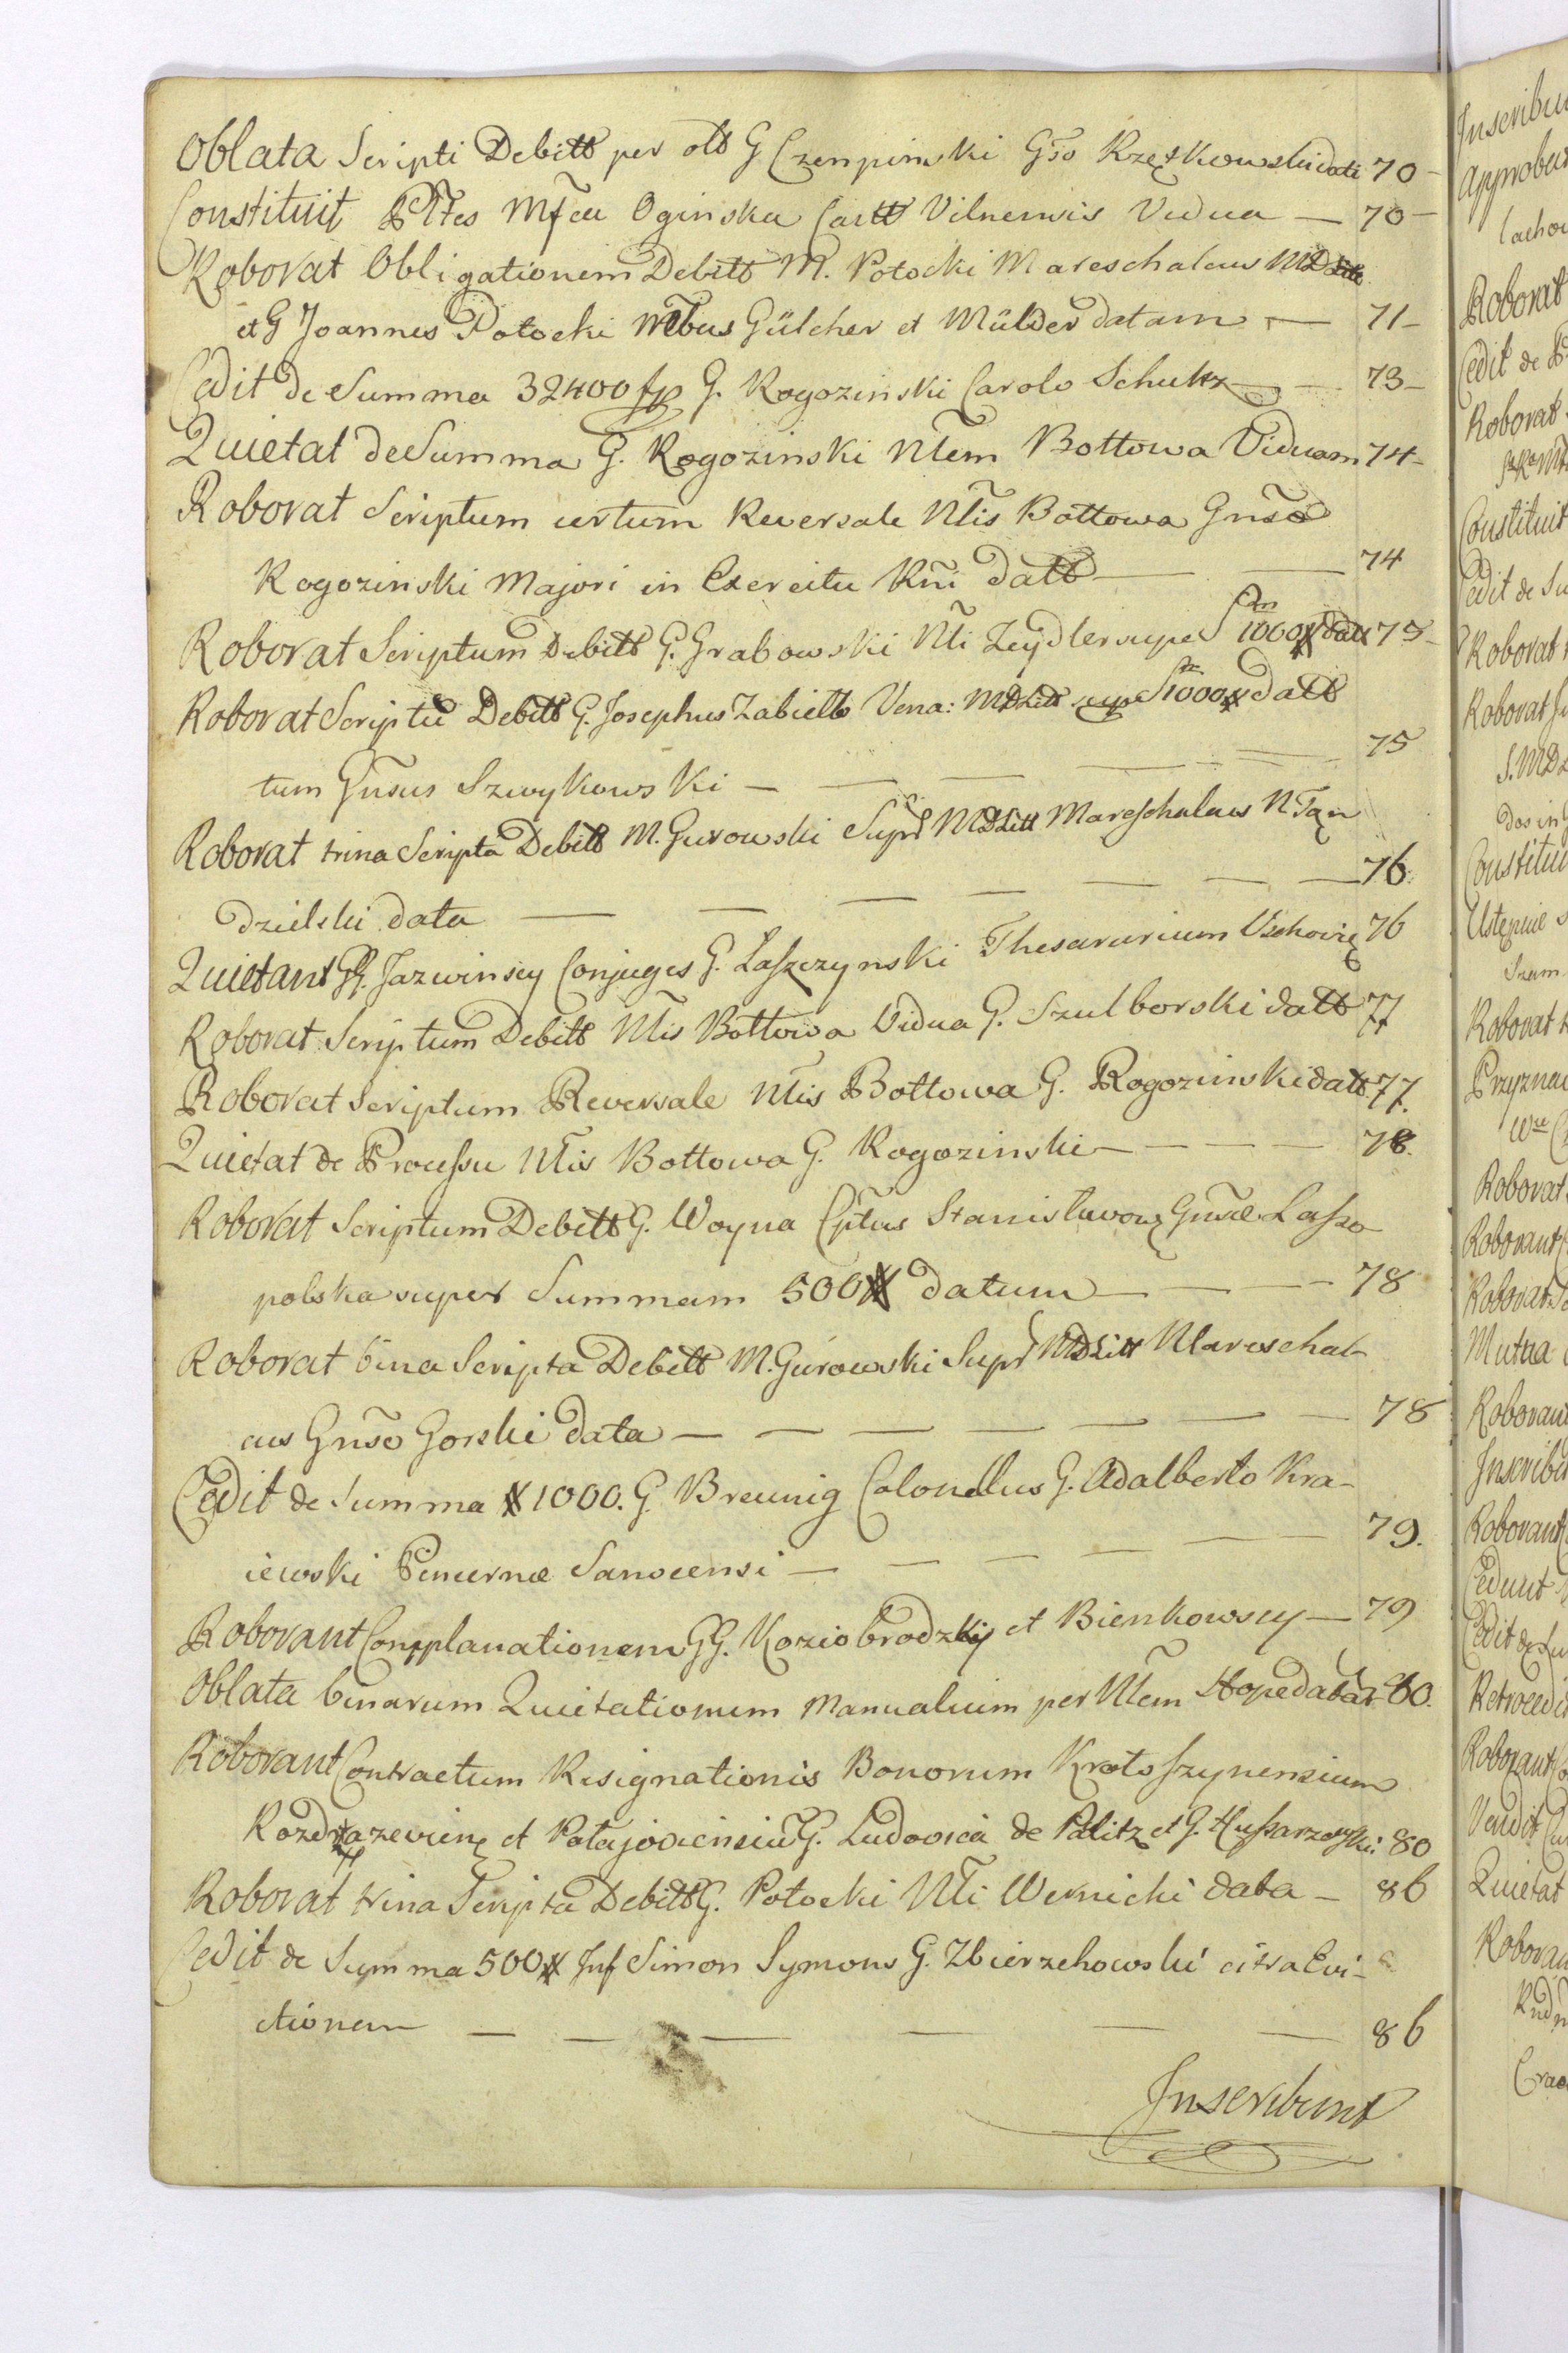 Oblata Scripti Debitt per olt G Czenpinski Gso Rzętkowski dati 70-
Constituit Plttes Mfca Oginska Castt Vilnensis Vidua — 70-
Roborat Obligationem Debitt M. Potocki Mareschalcus MDLitt
et G Joannes Potocki Nttbus Gülcher et Mülder datam — 71-
Cedit de Summa 32400 fp G. Rogozinski Carolo Schultz — 73-
Quietat de Summa G. Rogozinski Ntem Bottowa Viduam 74-
Roborat Scriptum certum Reversale Ntis Bottowa Gnso
Rogozinski Majori in Exercitu Rni datt — 74
Roborat Scriptum Debitt G. Grabowski Nti Zeydler super Sm 1000# datt 75-
Roborat Scriptũ Debitt G. Josephus Zabiello Vena: MDLitt super Sm 1000# datt
tum Gnsus Szwykowski — 75
Roborat trina Scripta Debitt M. Gurowski Supr MDLitt Mareschalcus N Tąn
dzielski data — 76.
Quietant GG. Jazwinscy Conjuges G. Laszczynski Thesaurarium Vschovię 76
Roborat Scriptum Debitt Ntis Bottowa Vidua G. Szulborski datt 77
Roborat Scriptum Reversale Ntis Bottowa G. Rogozinski datt 77.
Quietat de Processu Ntis Bottowa G. Rogozinski — 78.
Roborat Scriptum Debitt G. Woyna Cptus Stanislavow Gnsæ Laszo
polska super Summam 500# datum — 78
Roborat bina Scripta Debitt M. Gurowski Supr MDLitt Mareschal-
cus Gnso Gorski data — 78
Cedit de Summa # 1000. G. Breunig Colonellus G. Adalberto Kra-
iewski Pincernæ Sanocensi — 79.
Roborant Complanationem GG. Koziobrodzkij et Bienkowscy — 79
Oblata binarum Quietationum Manualium per Ntem Hope datar 80.
Roborant Contractum Resignationis Bonorum Krotoszynensium
Rozdrazevien et Potajoviensiũ G. Ludovica de Palitz et G. Hussarzewski 80
Roborat trina Scripta Debitt G. Potocki Nti Wernicki data — 86
Cedit de Summa 500# Inf Simon Symons G. Zbierzchowski citra Evi-
ctionem — 86
Inscribunt